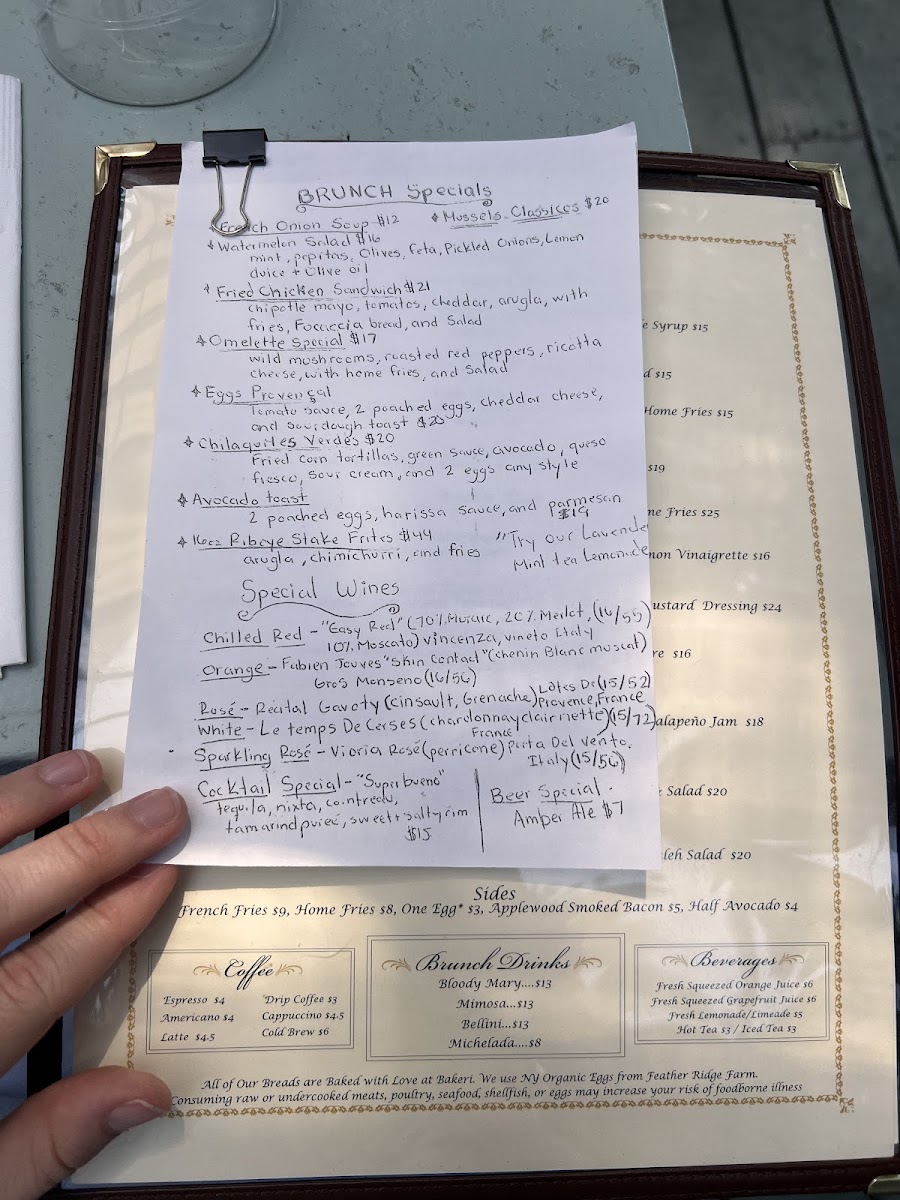 BRUNCH Specials
French Onion Soup $12
Mussels Classicos $20
Watermelon Salad $16
mint, pepitas, Olives, feta, Pickled Onions, Lemon
Juice + Olive oil
Fried Chicken Sandwich $21
chipotle mayo, tomatos, cheddar, arugla, with
fries, Foccaccia bread, and Salad
Omelette Special $17
wild mushrooms, roasted red peppers, ricotta
cheese, with home fries, and Salad
Eggs Provençal
Tomato sauce, 2 poached eggs, cheddar cheese,
and sourdough toast $20
Chilaquiles Verdes $20
Fried corn tortillas, green sauce, avocado, queso
fiesco, sour cream, and 2 eggs any style
Avocado toast
2 poached eggs, harissa sauce, and parmesan
$19
16oz Ribeye Stake Frites $44
arugla, chimichurri, and fries
"Try our Lavender
Mint tea Lemonade
Special Wines
Chilled Red - "Easy Red" (70% Muraic, 20% Merlot, (16/55)
10% Moscato) Vincenza, Vineto Italy
Orange - Fabien Jouves "Skin Contact" (Chenin Blanc muscat)
Gros Manseno (16/56)
Rosé - Recital Gavoty (cinsault, Grenache) Côtes De (15/52)
Provence, France
White - Le temps De Cerses (chardonnay clairnette) (15/72)
France
Sparkling Rosé - Vioria Rosé (perricone) Porta Del Vento,
Italy (15/56)
Cocktail Special - "Superbueno"
tequila, nixta, cointreau,
tamarind pureé, sweet + salty rim
$15
Beer Special -
Amber Ale $7
Syrup $15
$15
Home Fries $15
$19
Fries $25
Vinaigrette $16
Dressing $24
$16
Jalapeño Jam $18
Salad $20
Salad $20
Sides
French Fries $9, Home Fries $8, One Egg* $3, Applewood Smoked Bacon $5, Half Avocado $4
Coffee
Espresso $4
'Drip Coffee $3
Americano $4
Cappuccino $4.5
Latte $4.5
Cold Brew $6
Brunch Drinks
Bloody Mary....$13
Mimosa...$13
Bellini...$13
Michelada....$8
Beverages
Fresh Squeezed Orange Juice $6
Fresh Squeezed Grapefruit Juice $6
Fresh Lemonade/Limeade $5
Hot Tea $3 / Iced Tea $3
All of Our Breads are Baked with Love at Bakeri. We use NY Organic Eggs from Feather Ridge Farm.
Consuming raw or undercooked meats, poultry, seafood, shellfish, or eggs may increase your risk of foodborne illness